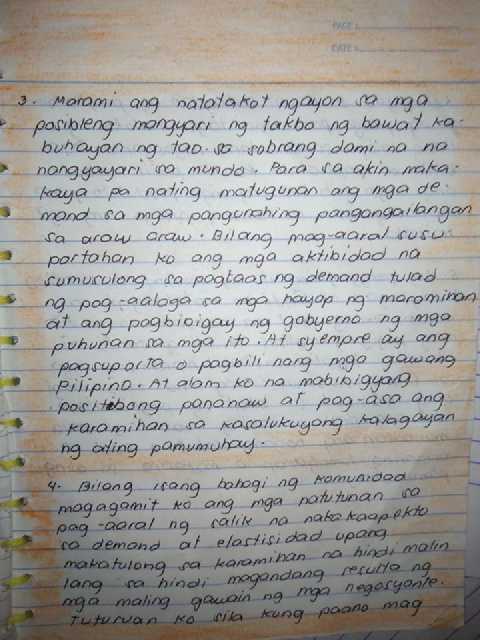 3. Marami ang natatakot ngayon sa mga
posibleng mangyari ng takbo ng bawat ka-
buhayan ng tao sa sobrang dami na na
nangyayari sa mundo. Para sa akin maka-
kaya pa nating matugunan ang mga de-
mand sa mga pangunahing pangangailangan
sa araw araw. Bilang mag-aaral susu
portahan ko ang mga aktibidad na
sumusulong sa pagtaas ng demand tulad
ng pag-aaloga sa mga hayop ng maromihan
at ang pagbibigay ng gobyerno ng mga
puhunan sa mga ito. At syempre ay ang
pagsuporta o pagbili nang mga gawang
Pilipino. At alam ko na mabibigyang
positibong pananaw at pag-asa ang
karamihan sa kasalukuyang kalagayan
ng ating pamumuhay.
4. Bilang isang bahagi ng komunidad
magagamit ko ang mga natutunan sa
pag-aaral ng salik na nakakaapekto
sa demand at elastisidad upang
makatulong sa karamihan na hindi malin
lang sa hindi magandang resulta ng
mga maling gawain ng mga negosyante.
Tuturuan ko sila kung paano mag